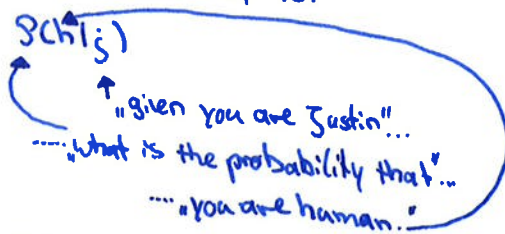 P(h|j)
„given you are Justin"...
....„what is the probability that"...
....„you are human."